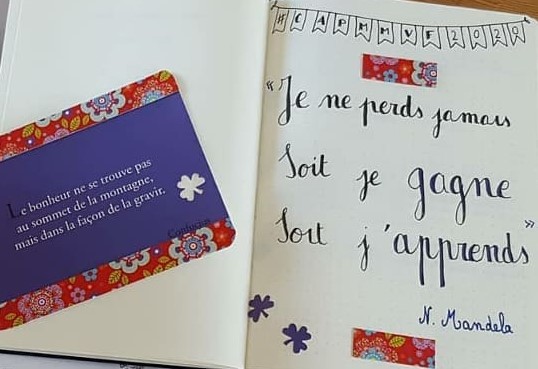 Le bonheur ne se trouve pas
au sommet de la montagne,
mais dans la façon de la gravir.
Confucius
#CAPMMVF2020
"Je ne perds jamais
Soit je gagne
Soit j'apprends"
N. Mandela